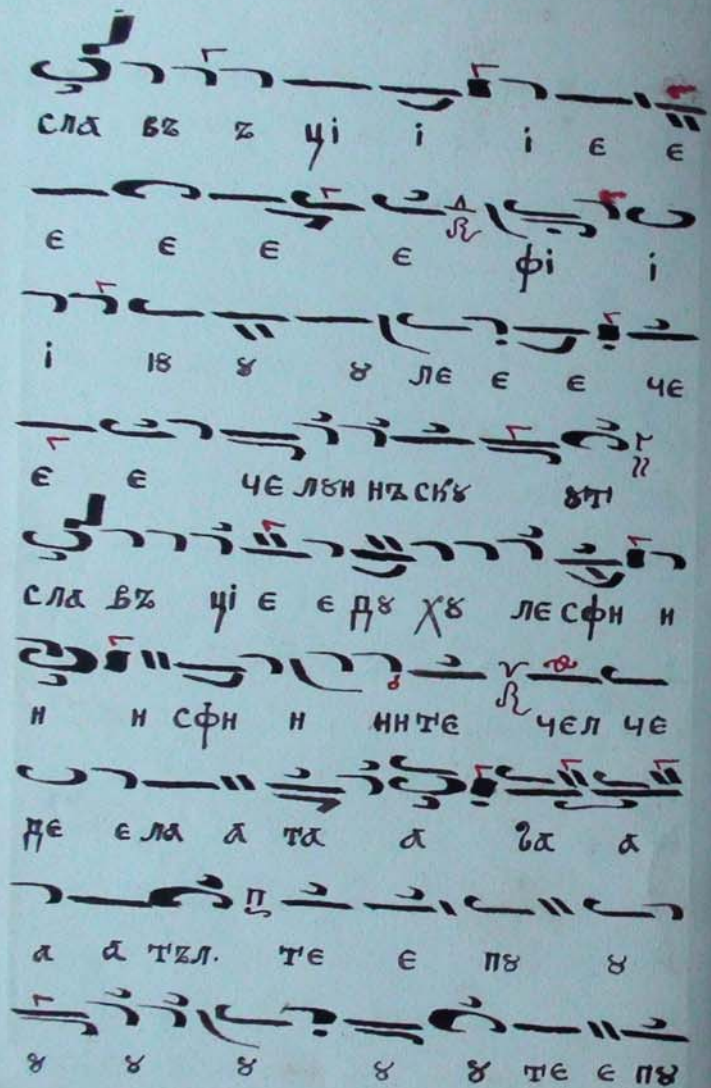 сла въ ъ ці і і є є
є є є є фі і
і ıȣ ȣ ȣ лє є є чє
є є чє лȣн нъ скȣ ȣт
сла въ ці є є дȣ хȣ лє сфн н
н н сфн н нн тє чєл чє
дє є ла а та а га а
а а тъл. тє є пȣ ȣ
ȣ ȣ ȣ ȣ ȣ тє є пȣ